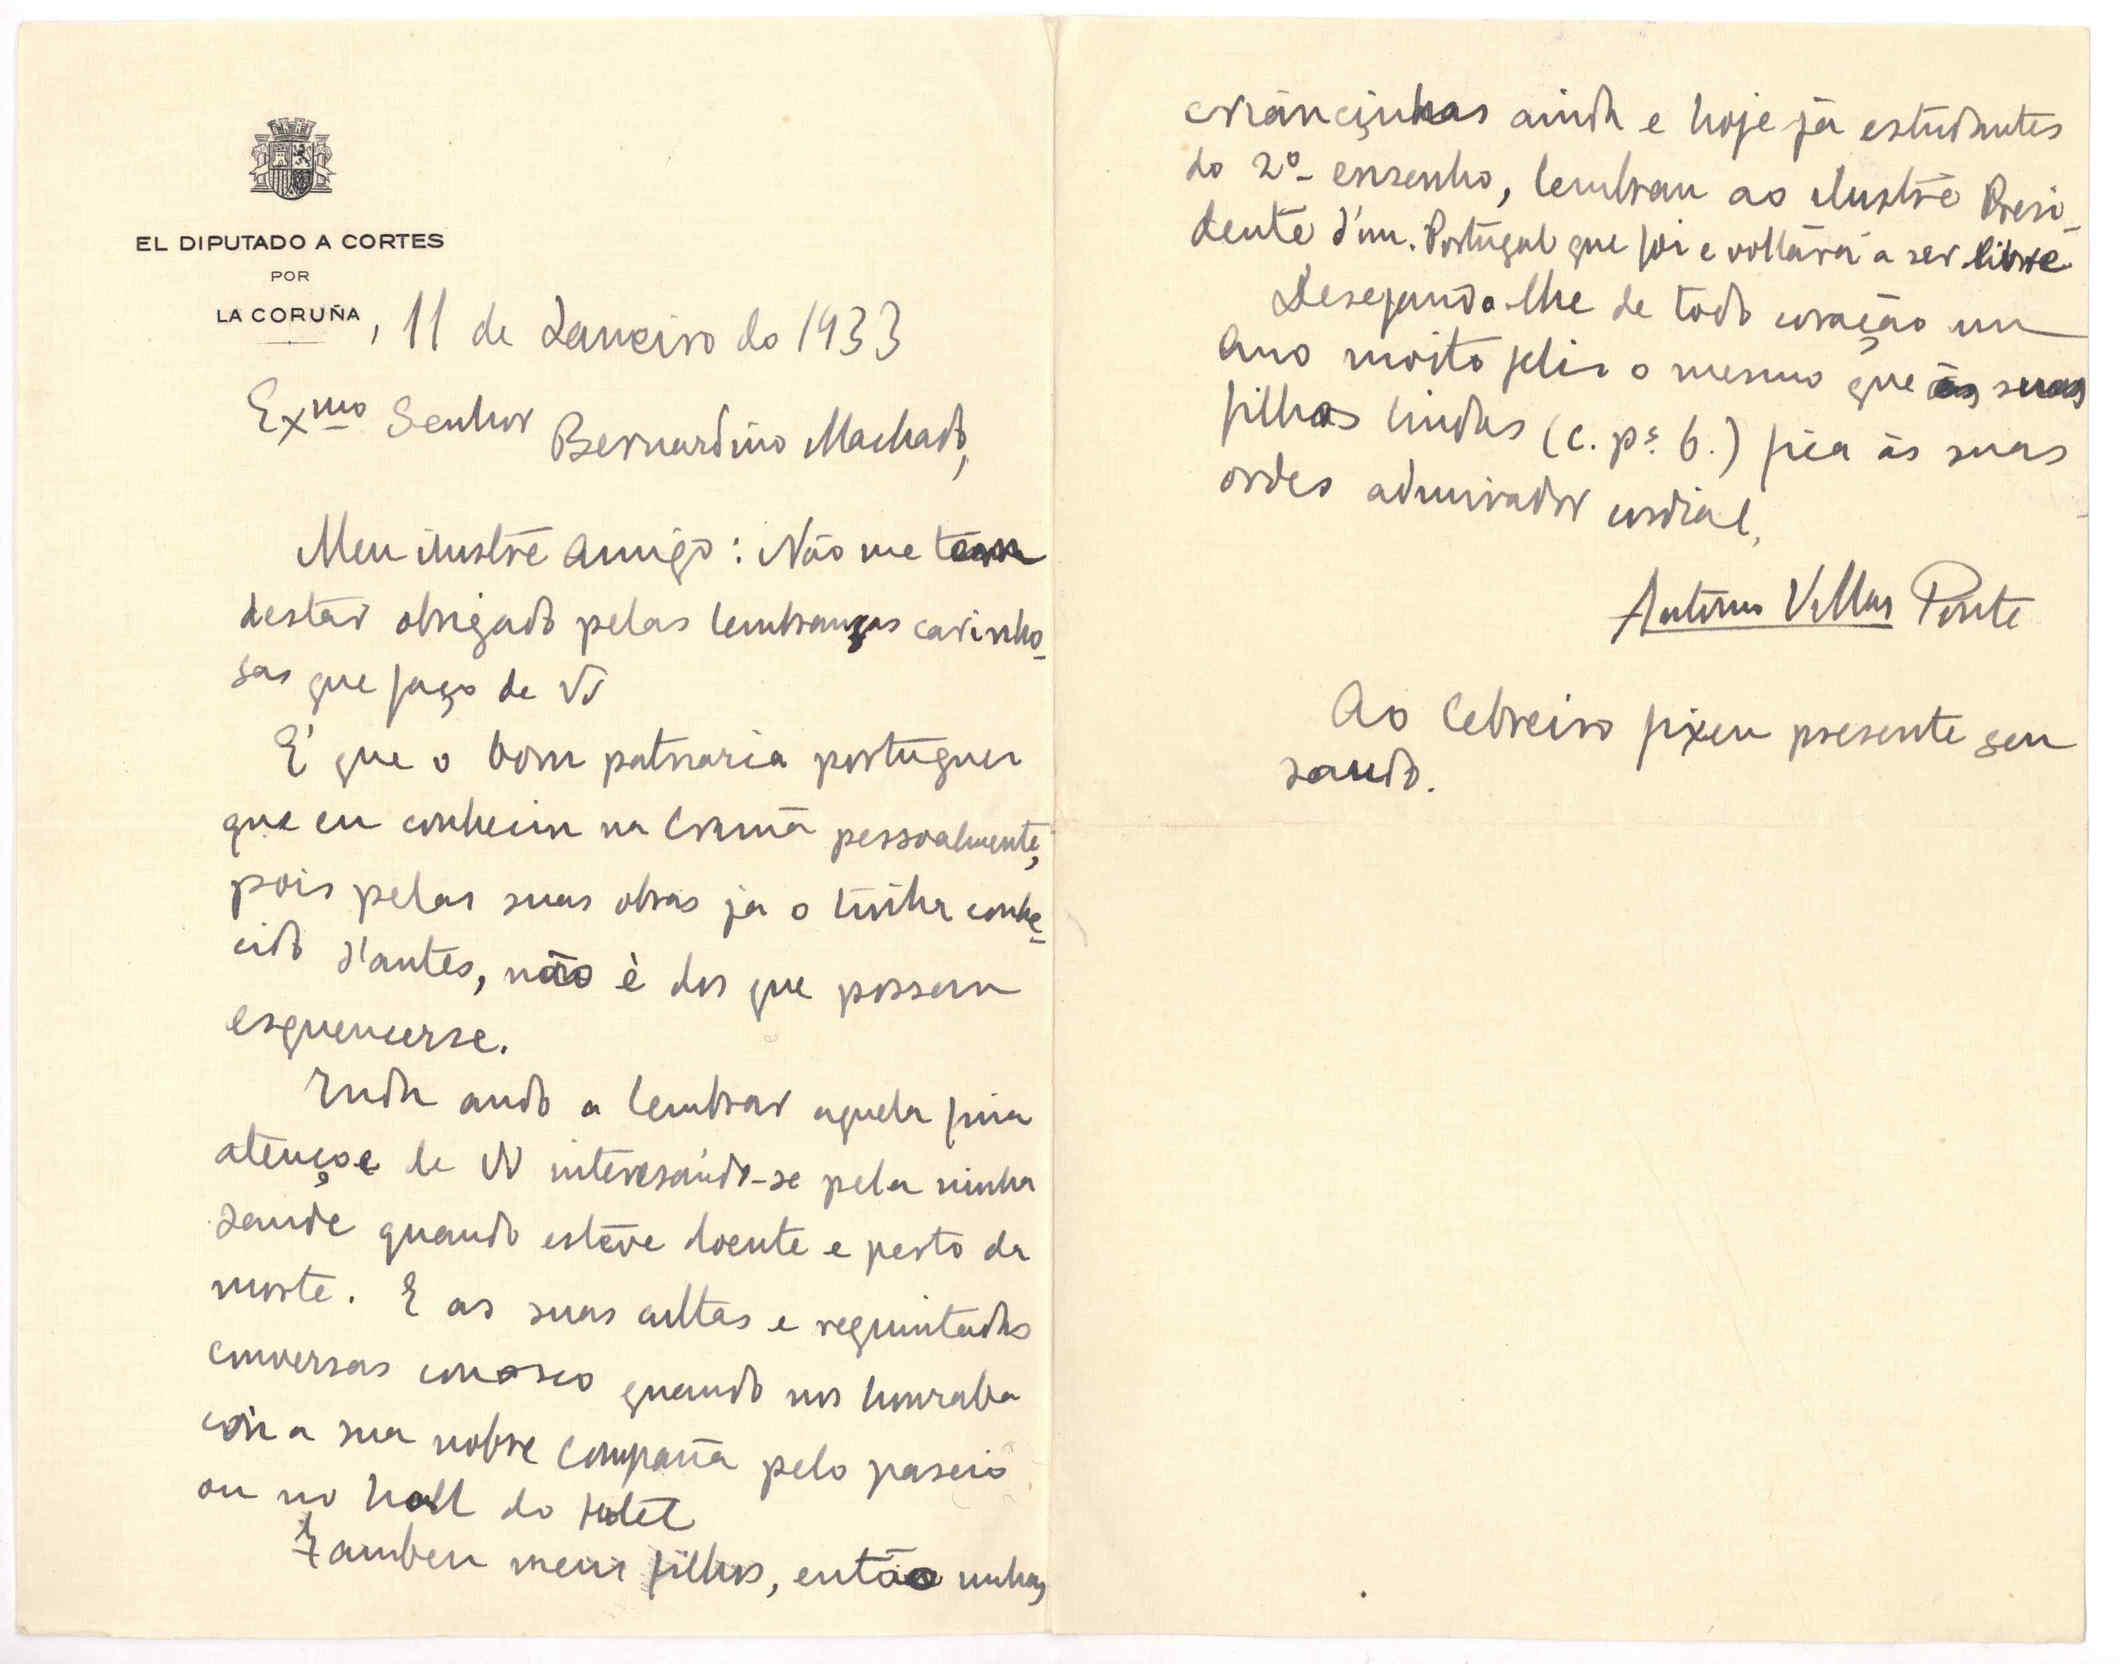 EL DIPUTADO A CORTES
POR
LA CORUÑA
, 11 de Janeiro do 1933
Exmo Senhor Bernardino Machado,
Meu ilustre amigo: Não me tem
destar obrigado pelas lembranças carinho-
sas que faço de VV
E' que o bom patriarca portuguez
que eu conhecin na Cruña pessoalmente,
pois pelas suas obras ja o tinha conhe-
cido d'antes, não è dos que possam
esquencerse.
Inda ando a lembrar aquela fina
atençoe de VV interesando-se pela minha
saude quando esteve doente e perto da
morte. E as suas cultas e requintadas
conversas conosco quando nos honraba
con a sua nobre compaña pelo paseio
ou no hall do Hotel
Tamben meus filhos, então unhas
criancinhas ainda e hoje já estudantes
do 2º ensenho, lembran ao ilustre Presi-
dente d'un Portugal que foi e voltará a ser libre
Desejando-lhe de todo coração un
ano moito feliz o mesmo que ás suas
filhas lindas (c. ps. b.) fica ás suas
ordes admirador cordial,
Antonio Villar Ponte
Ao Cebreiro fixen presente seu
saudo.